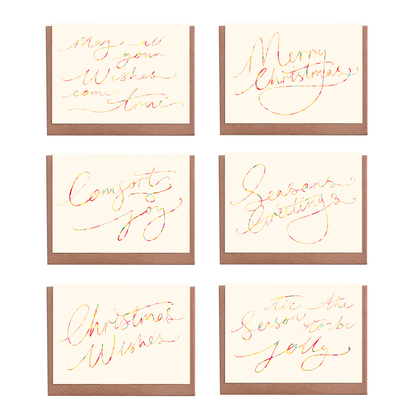 May all
your
Wishes
come
true
Merry
Christmas
Comfort &
Joy
Seasons
Greetings
Christmas
Wishes
tis the
Season
to be
Jolly